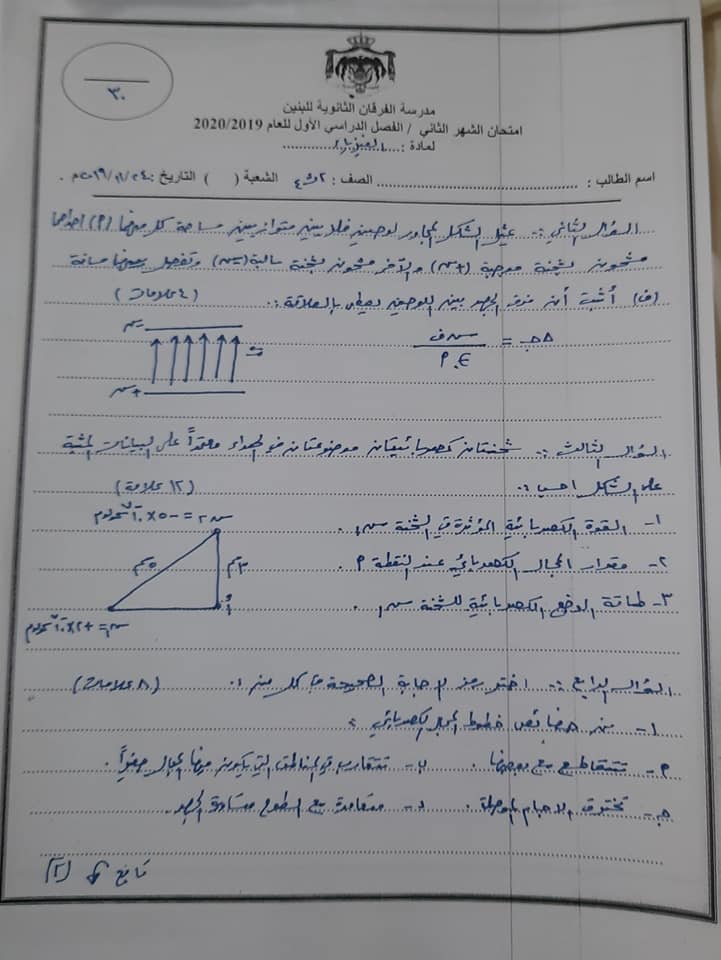 ٣٠
مدرسة الفرقان الثانوية للبنين
امتحان الشهر الثاني / الفصل الدراسي الأول للعام 2020/2019
لمادة: الفيزياء
اسم الطالب: الصف: الشعبة ( ) التاريخ: ٢٠١٩/١١/٢٤م.
السؤال الثاني: يمثل الشكل المجاور لوحين فلزيين متوازيين مساحة كل منهما (P) أحدهما
مشحون بشحنة موجبة (+س) والآخر مشحون بشحنة سالبة (-س) وتفصل بينهما مسافة
(ف) أثبت أن فرق الجهد بين اللوحين يعطى بالعلاقة: (٤ علامات)
Δجـ = س ف / Є. P
-س
+س
السؤال الثالث: شحنتان كهربائيتان موضوعتان في الهواء معتمداً على البيانات المثبتة
على الشكل احسب: (١٢ علامة)
١- القوة الكهربائية المؤثرة في الشحنة س١.
٢- مقدار المجال الكهربائي عند النقطة P
٣- طاقة الوضع الكهربائية للشحنة س١.
٣سم
٥سم
السؤال الرابع: اختر رمز الإجابة الصحيحة مما كل من: (٨ علامات)
١- من خصائص خطوط المجال الكهربائي:
P- تتقاطع مع بعضها. ب- تتقارب في المناطق التي يكون فيها المجال صغيراً.
جـ- تخترق الأجسام الموصلة. د- متعامدة مع السطوح متساوية الجهد.
تابع (٢)